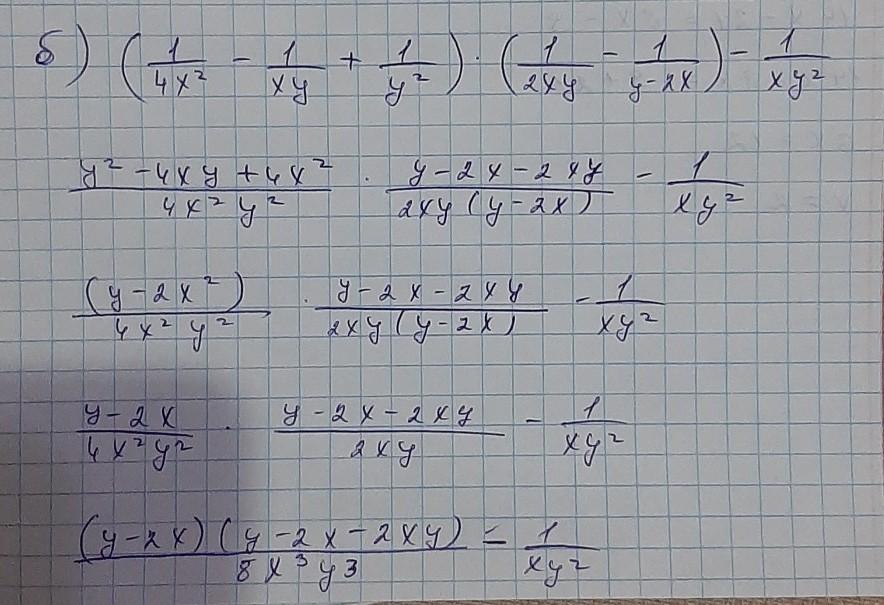 б) (1/4x² - 1/xy + 1/y²) · (1/2xy - 1/y-2x) - 1/xy²
y² - 4xy + 4x² / 4x²y² · y - 2x - 2xy / 2xy(y-2x) - 1/xy²
(y-2x²) / 4x²y² · y - 2x - 2xy / 2xy(y-2x) - 1/xy²
y - 2x / 4x²y² · y - 2x - 2xy / 2xy - 1/xy²
(y-2x)(y - 2x - 2xy) / 8x³y³ = 1/xy²